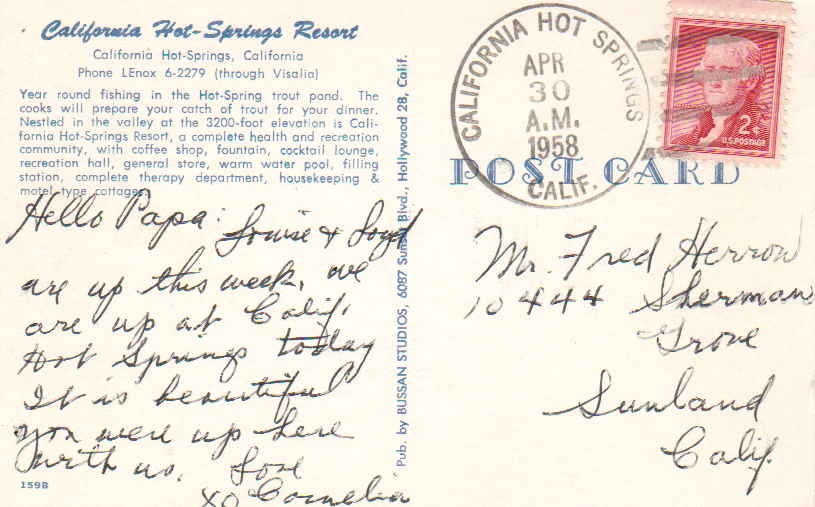 California Hot-Springs Resort
California Hot-Springs, California
Phone LEnox 6-2279 (through Visalia)
Year round fishing in the Hot-Spring trout pond. The
cooks will prepare your catch of trout for your dinner.
Nestled in the valley at the 3200-foot elevation is Cali-
fornia Hot-Springs Resort, a complete health and recreation
community, with coffee shop, fountain, cocktail lounge,
recreation hall, general store, warm water pool, filling
station, complete therapy department, housekeeping &
motel-type cottages.
Hello Papa: Louise & Loyd
are up this week, we
are up at Calif.
Hot Springs today
It is beautiful
you were up here
with us. Love
XO Cornelia
159B
Pub. by BUSSAN STUDIOS, 6087 Sunset Blvd., Hollywood 28, Calif.
CALIFORNIA HOT SPRINGS
APR
30
A.M.
1958
CALIF.
2¢
U.S. POSTAGE
POST CARD
Mr. Fred Herron
10444 Sherman
Grove
Sunland
Calif.